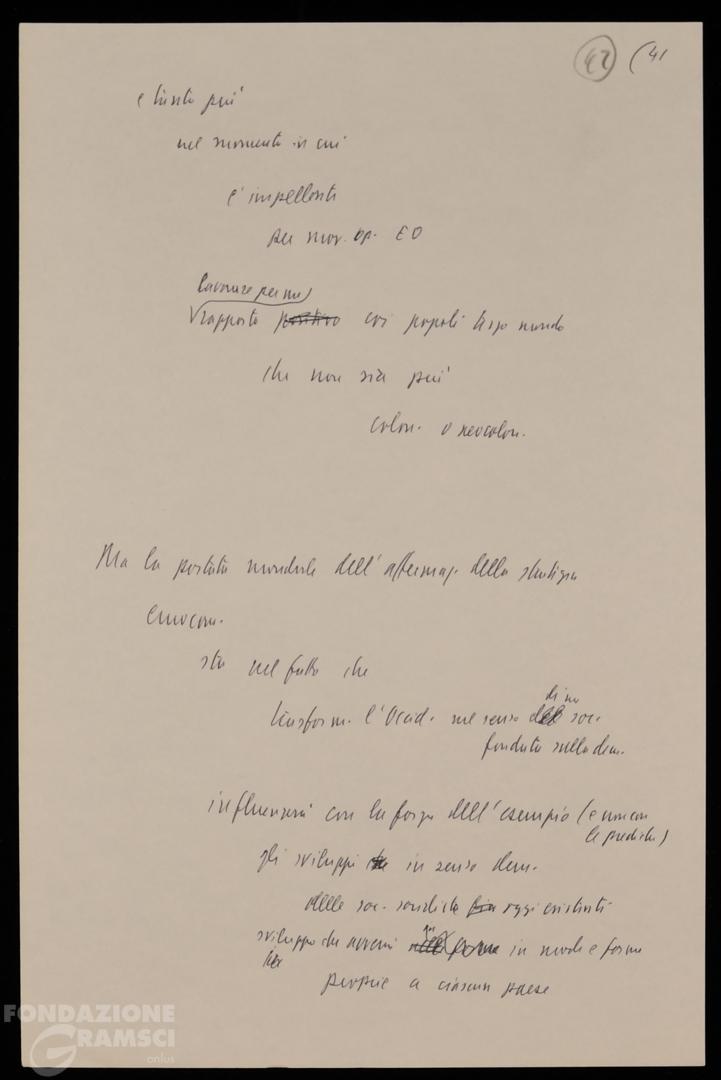 42 (41
e tanto più
nel momento in cui
è impellente
per mov. op. EO
rapporto positivo coi popoli terzo mondo
che non sia più
colon. o neocolon.
Ma la portata mondiale dell'affermaz. della strategia
eurocom.
sta nel fatto che
trasform. l'Occid. nel senso di una soc.
fondata sulla dem.
influenzerà con la forza dell'esempio (e non con
le prediche)
gli sviluppi in senso dem.
delle soc. socialiste oggi esistenti
sviluppo che avverrà in modi e forme
proprie a ciascun paese
FONDAZIONE
GRAMSCI
onlus